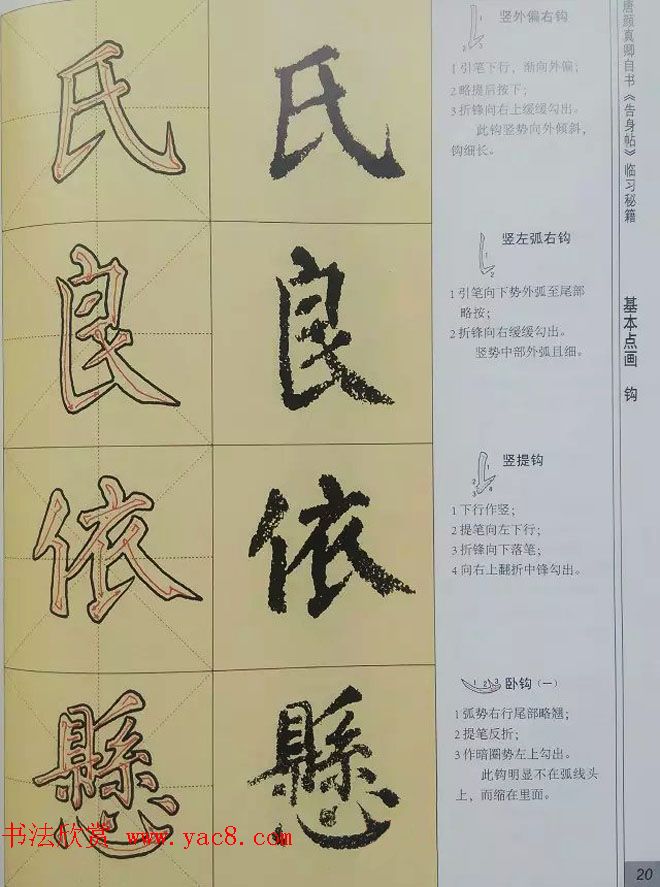 唐颜真卿自书《告身帖》临习秘籍
基本点画 钩
氏 氏
竖外偏右钩
1引笔下行，渐向外偏；
2略提后按下；
3折锋向右上缓缓勾出。
此钩竖势向外倾斜，
钩细长。
良 良
竖左弧右钩
1引笔向下势外弧至尾部
略按；
2折锋向右缓缓勾出。
竖势中部外弧且细。
依 依
竖提钩
1下行作竖；
2提笔向左下行；
3折锋向下落笔；
4向右上翻折中锋勾出。
懸 懸
1 2 3 卧钩（一）
1弧势右行尾部略翘；
2提笔反折；
3作暗圈势左上勾出。
此钩明显不在弧线头
上，而缩在里面。
书法欣赏 www.yac8.com
20